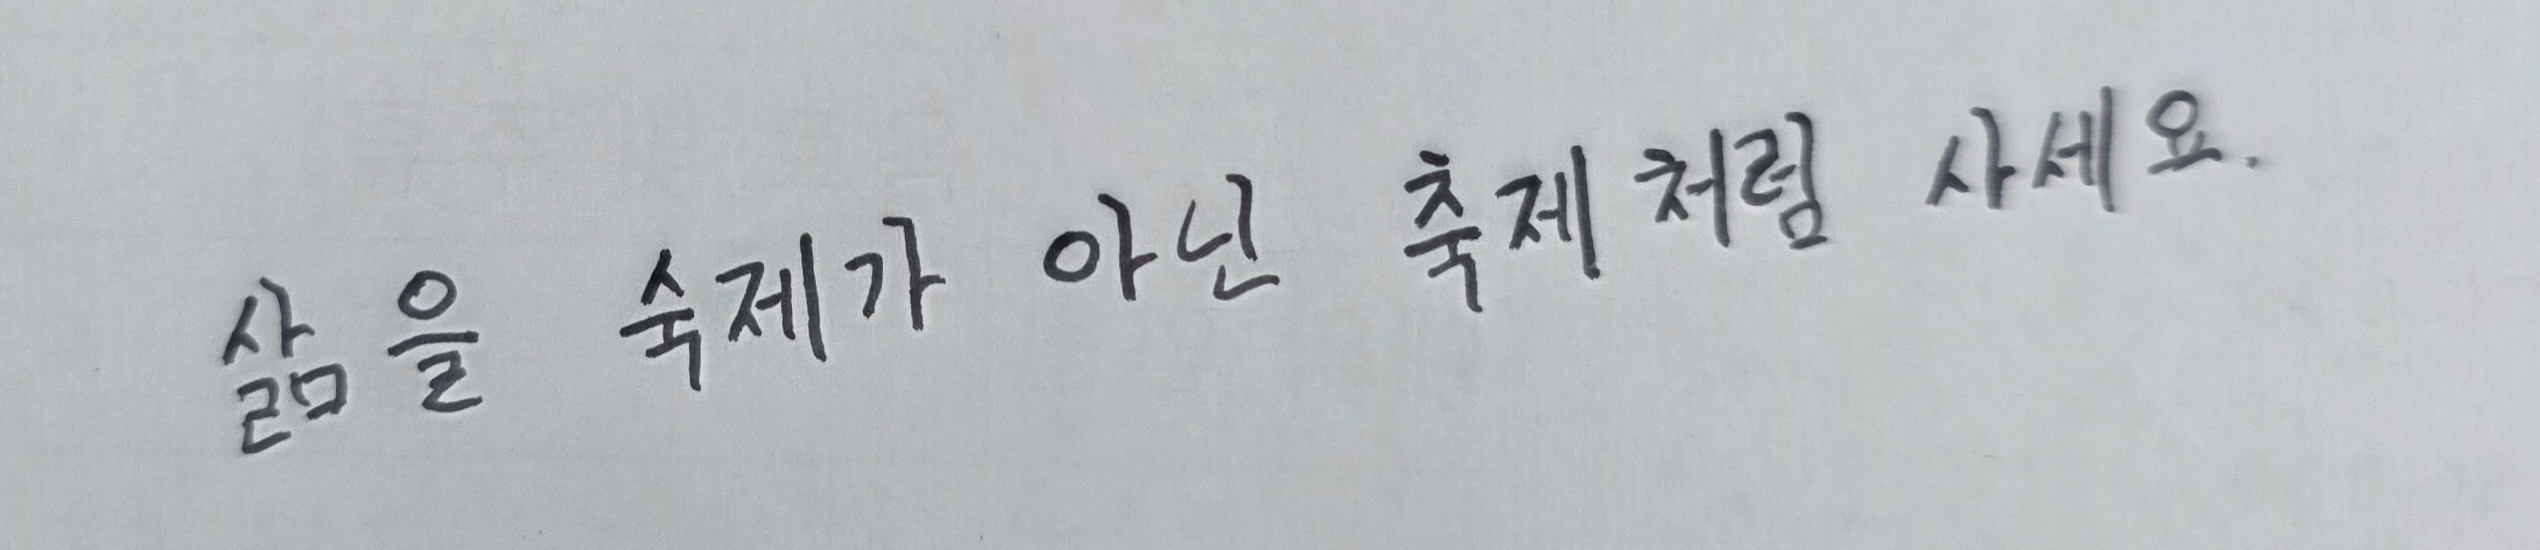 삶을 숙제가 아닌 축제처럼 사세요.